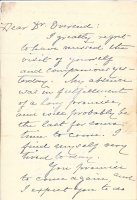 Dear Dr. Everend.
I greatly regret
to have missed the
visit of yourself
and companions yes-
terday. My absence
was in fulfillment
of a long promise,
and will probably be
the last for some
time to come. I
find myself very
tired to day
You promise
to come again, and
I expect you to do